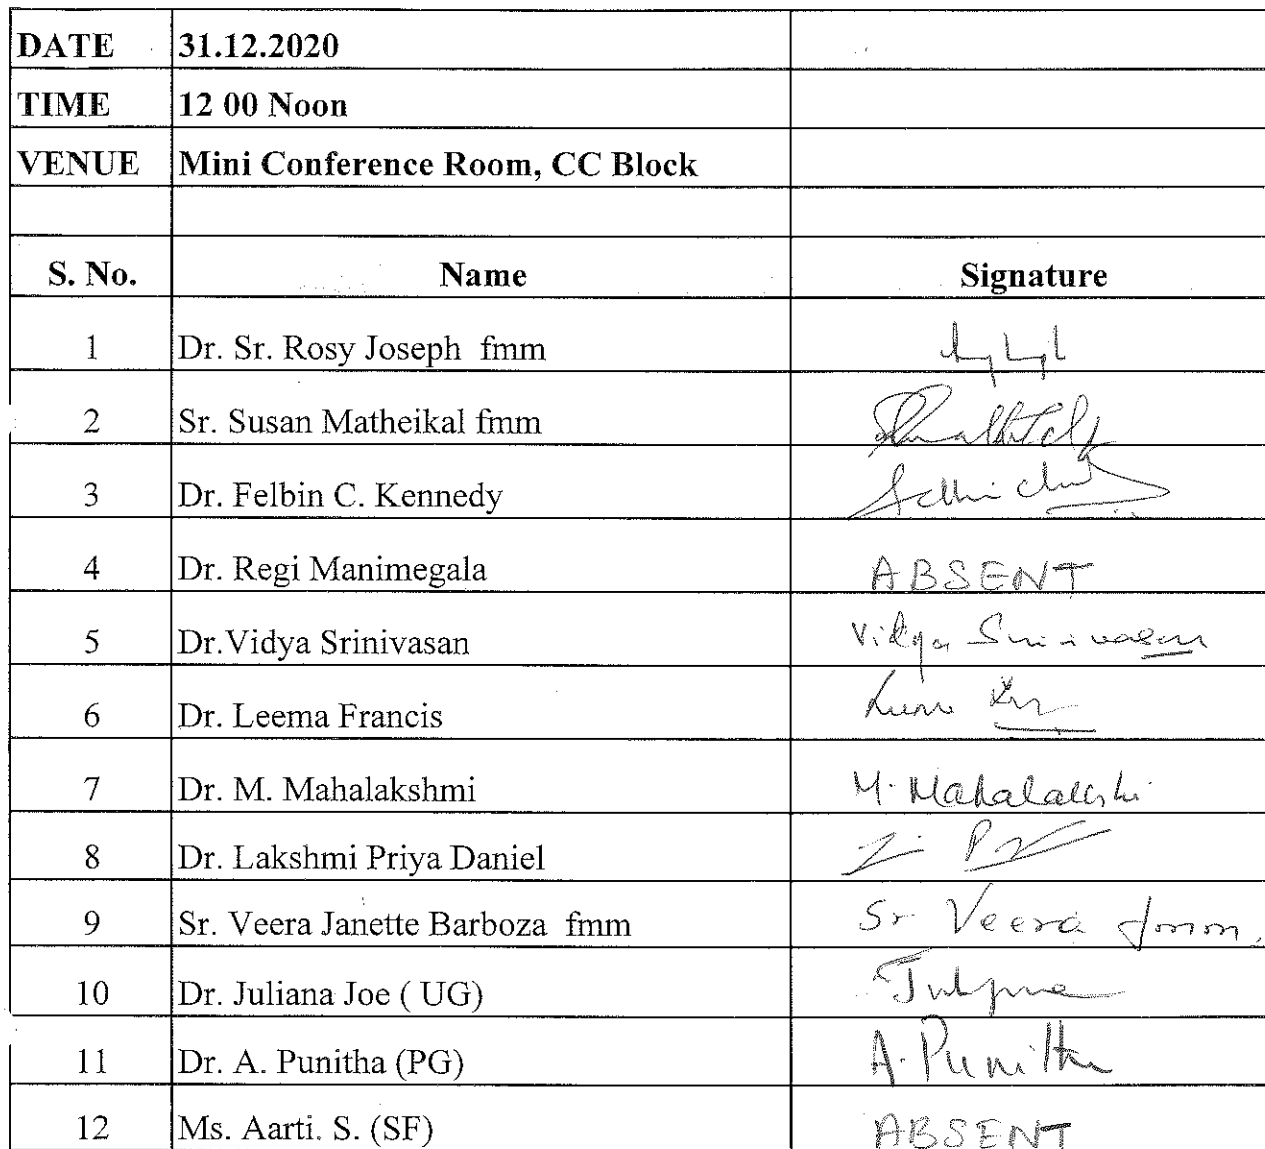 DATE 31.12.2020
TIME 12 00 Noon
VENUE Mini Conference Room, CC Block
S. No. Name Signature
1 Dr. Sr. Rosy Joseph fmm
2 Sr. Susan Matheikal fmm
3 Dr. Felbin C. Kennedy
4 Dr. Regi Manimegala ABSENT
5 Dr.Vidya Srinivasan Vidya Srinivasan
6 Dr. Leema Francis
7 Dr. M. Mahalakshmi M. Mahalakshmi
8 Dr. Lakshmi Priya Daniel
9 Sr. Veera Janette Barboza fmm Sr Veera fmm.
10 Dr. Juliana Joe ( UG)
11 Dr. A. Punitha (PG) A. Punitha
12 Ms. Aarti. S. (SF) ABSENT